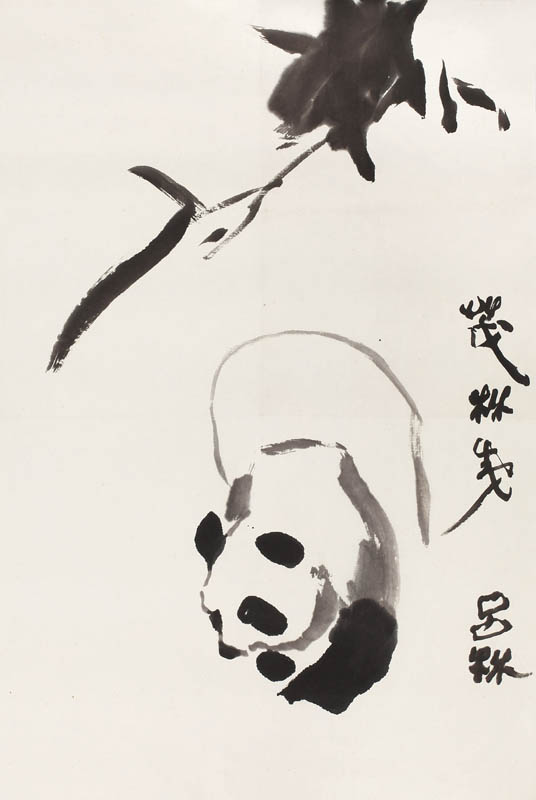 茂林 吕林